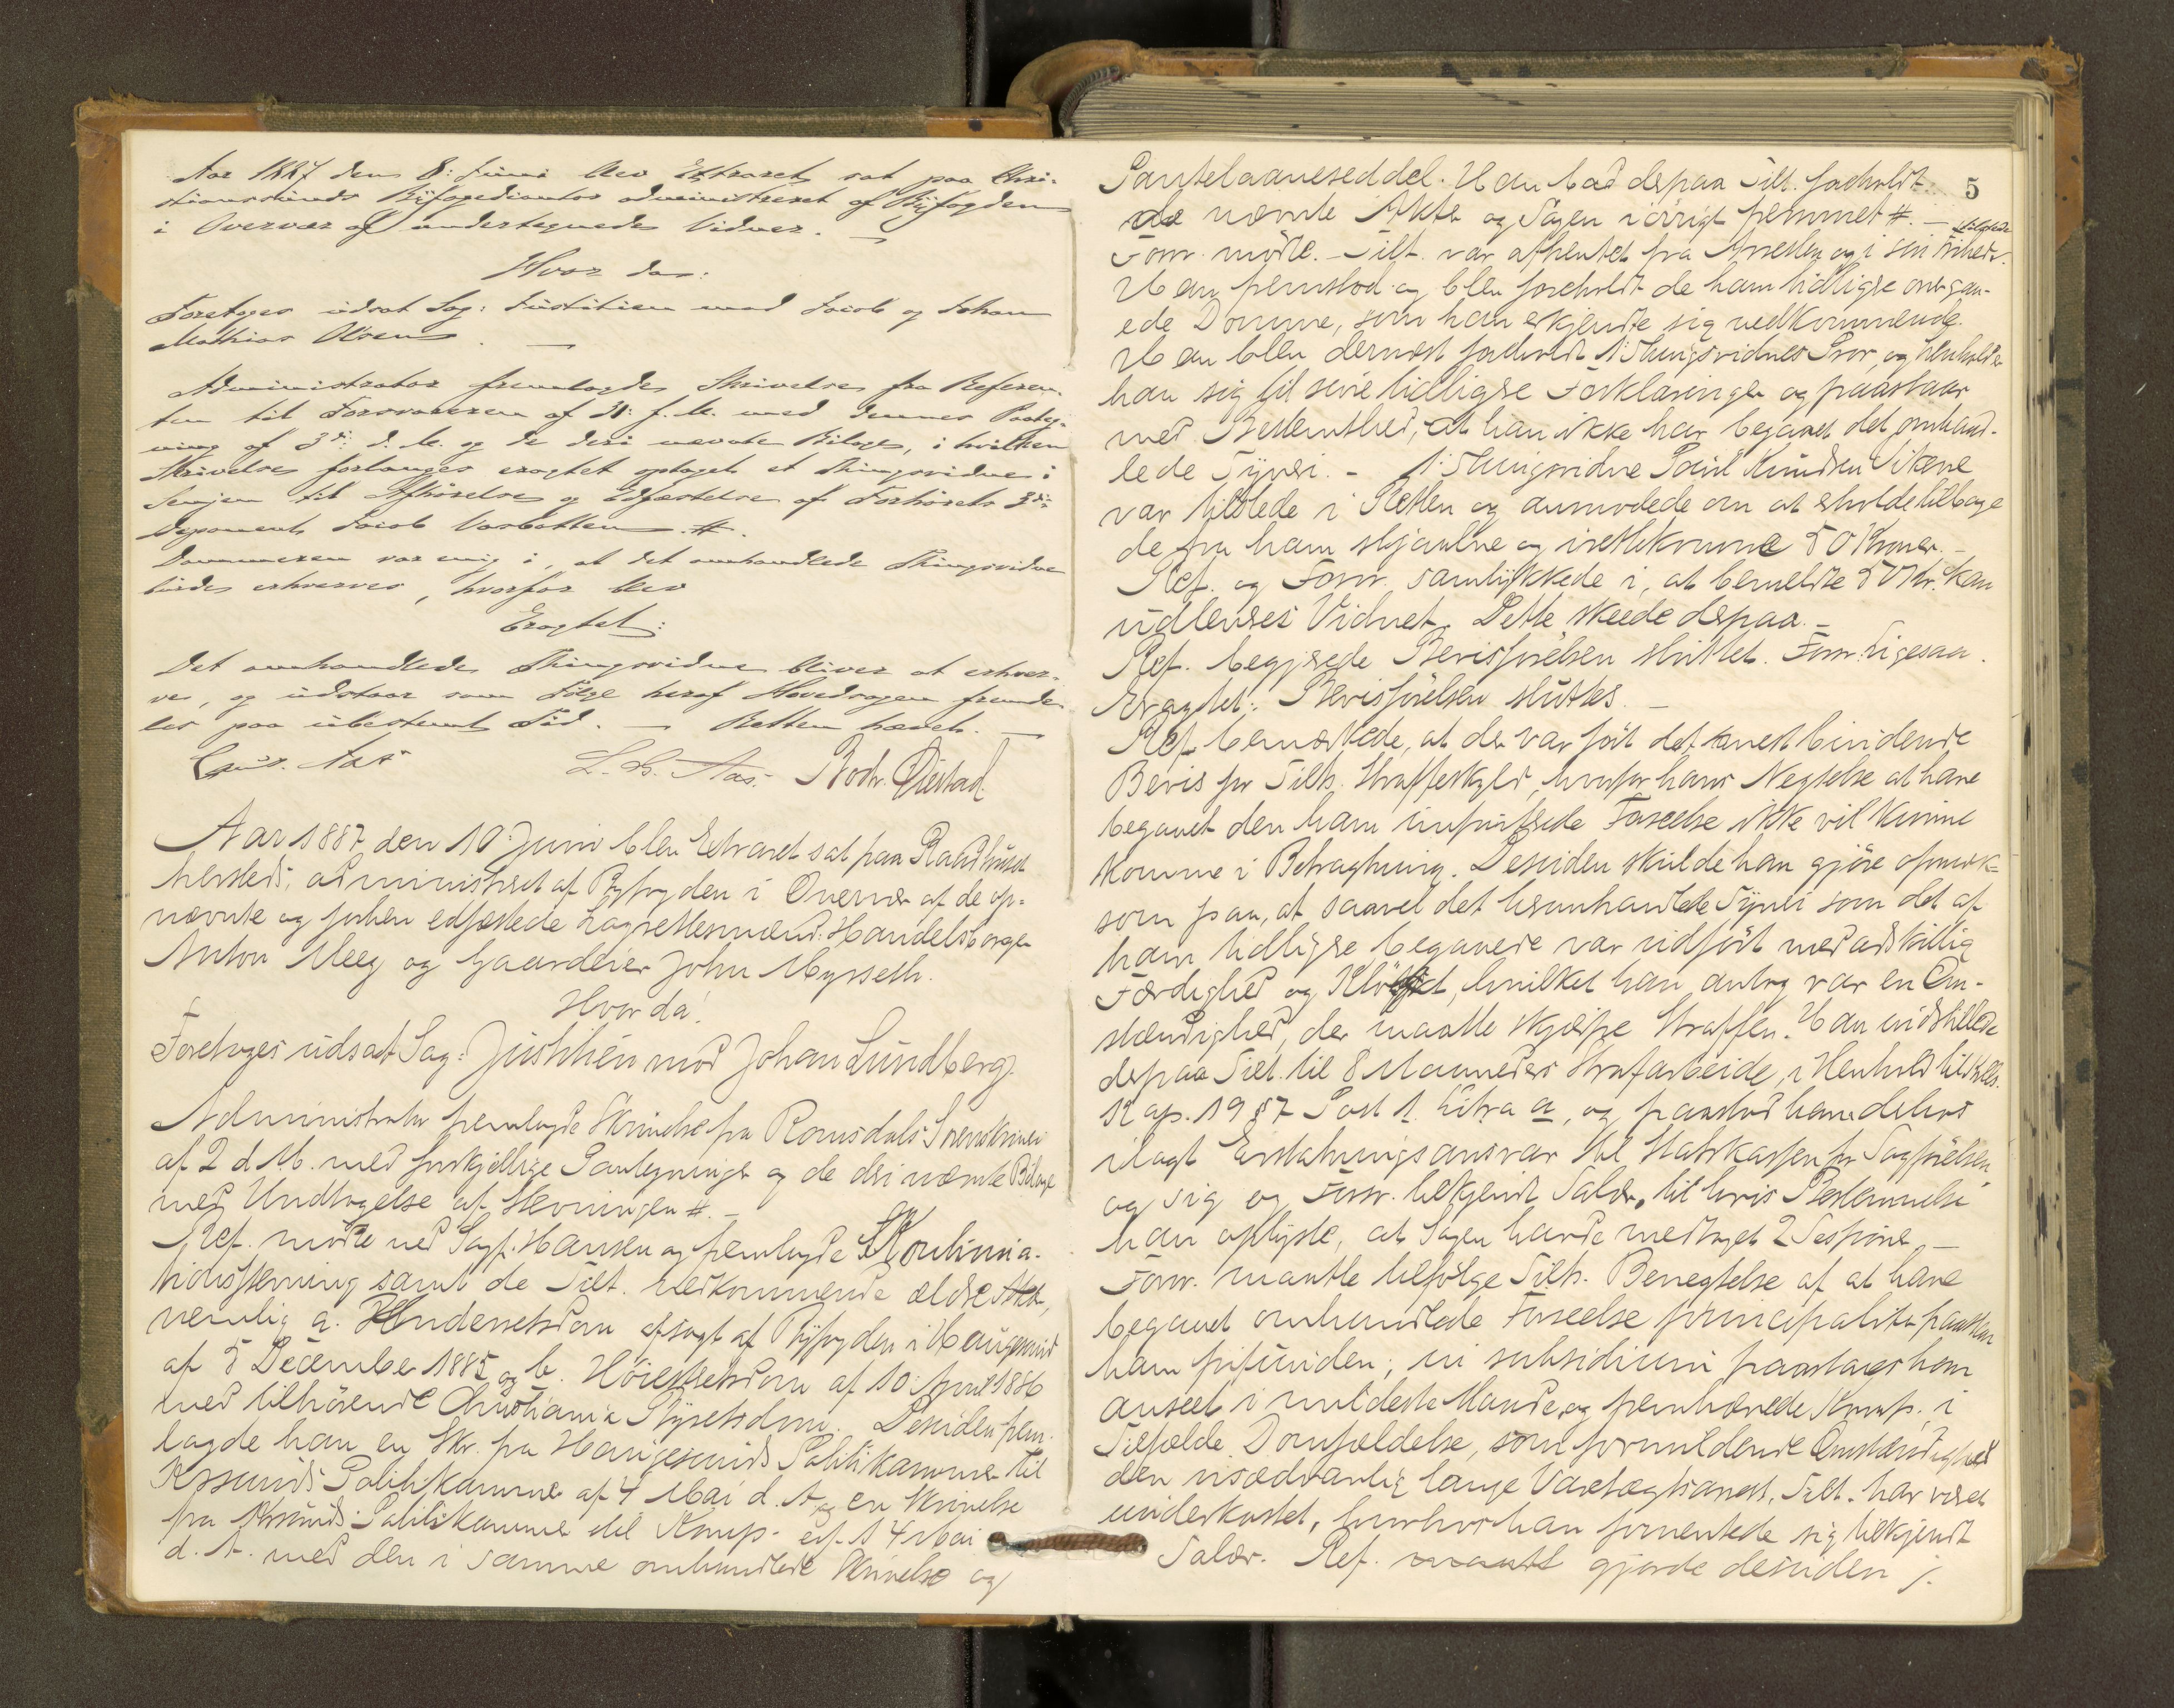 Aar 1887 den 8: Juni blev Extraret sat paa Chri-
stianssunds Byfogedkontor administreret af Byfogden
i Overvær af undertegnede Vidner. —
Hvor da:
Foretoges udsat Sag: Justitien mod Jacob og Johan
Mathias Olsen. —
Administrator fremlagde Skrivelse fra Referen-
ten til Forsvareren af 31: f. M. med dennes Paateg-
ning af 3die d. M. og de deri nævnte Bilage, i hvilken
Skrivelse forlanges eragtet optaget et Thingsvidne i
Senjen til Afhørelse og Edfæstelse af Forhørets 3die
Deponent Jacob Vasbotten #.
Dommeren var enig i, at det omhandlede Thingsvidne
burde erhverves, hvorfor blev
Eragtet:
Det omhandlede Thingsvidne bliver at erhver-
ves, og udstaar som Følge heraf Hovedsagen fremde-
les paa ubestemt Tid. — Retten hævet. —
Aas L. B. Aas.
Aar 1887 den 10: Juni blev Extraret sat paa Raadhuset
hersteds, administreret af Byfogden i Overvær af de op-
nævnte og forhen edfæstede Lagrettesmænd: Handelsborger
Anton Meeg og Gaardeier John Myrseth.
Hvor da!
Foretoges udsat Sag: Justitien mod Johan Lundberg.
Administrator fremlagde Skrivelse fra Romsdals Sorenskriveri
af 2 d. M. med forskjellige Paategninger og de deri nævnte Bilage
med Undtagelse af Stevningen #. —
Ref. mødte ved Sagf. Hansen og fremlagde Kontinua-
tionsstevning samt de Tilt. vedkommende ældre Akter,
nemlig a. Underretsdom afsagt af Byfogden i Haugesund
af 5 December 1885 og b. Høiesteretsdom af 10 April 1886
med tilhørende Christiania Byretsdom. Desuden frem-
lagde han en Skr. fra Haugesunds Politikammer til
Krsunds Politikammer af 4 Mai d. A. og en Skrivelse
fra Krsunds Politikammer til Komp. af 14 Mai
d. A. med den i samme omhandlede Skrivelse og
5
Pantelaaneseddel. Han bad derpaa Tilt. foreholdt
de nævnte Akter og Sagen iøvrigt fremmet #. —
Forsv. mødte. — Tilt. var afhentet fra Arresten og i sin Frihed tilstede.
Han fremstod og blev foreholdt de ham tidligere overgaa-
ede Domme, som han erkjendte sig vedkommende.
Han blev dernæst foreholdt 1: Thingsvidnes Prov, og henholder
han sig til sine tidligere Forklaringer og paastaar
med Bestemthed, at han ikke har begaaet det omhand-
lede Tyveri. — 1: Thingsvidne Knudsen
var tilstede i Retten og anmodede om at erholde tilbage
de fra ham stjaalne og irettekomne 50 Kroner. —
Ref. og Forsv. samtykkede i, at bemeldte 50 Kr. kan
udleveres Vidnet. Dette skeede derpaa. —
Ref. begjærede Bevisførelsen sluttet. Forsv. ligesaa.
Eragtet: Bevisførelsen sluttes. —
Ref. bemærkede, at der var ført det mest bindende
Bevis for Tilts. Straffeskyld, hvorfor hans Negtelse at have
begaaet den ham imputerede Forseelse ikke vil kunne
komme i Betragtning. Desuden skulde han gjøre opmærk-
som paa, at saavel det heromhandlede Tyveri som det af
ham tidligere begaaede var udført med adskillig
Færdighed og Kløgt, hvilket han antog var en Om-
stændighed, der maatte skjærpe Straffen. Han indstillede
derpaa Tilt. til 8 Maaneders Strafarbeide, i Henhold til
Kap. 19 § 7 Post 1 Litra a, og paastod ham derhos
ilagt Erstatningsansvar til Statskassen for Sagførelsen
og sig og Forsv. tilkjendt Salær, til hvis Bestemmelse
han oplyste, at Sagen havde medtaget 2 Sessioner. —
Forsv. maatte ifølge Tilts. Benegtelse af at have
begaaet omhandlede Forseelse principaliter paastaa
ham frifunden; in subsidium paastaaes ham
anseet i mildeste Maade, og fremhævede Komp. i
Tilfælde Domfældelse, som formildende Omstændighed
den usædvanlig lange Varetægtsarrest, Tilt. har været
underkastet, hvorhos han formentede sig tilkjendt
Salær. Ref. gjorde desuden